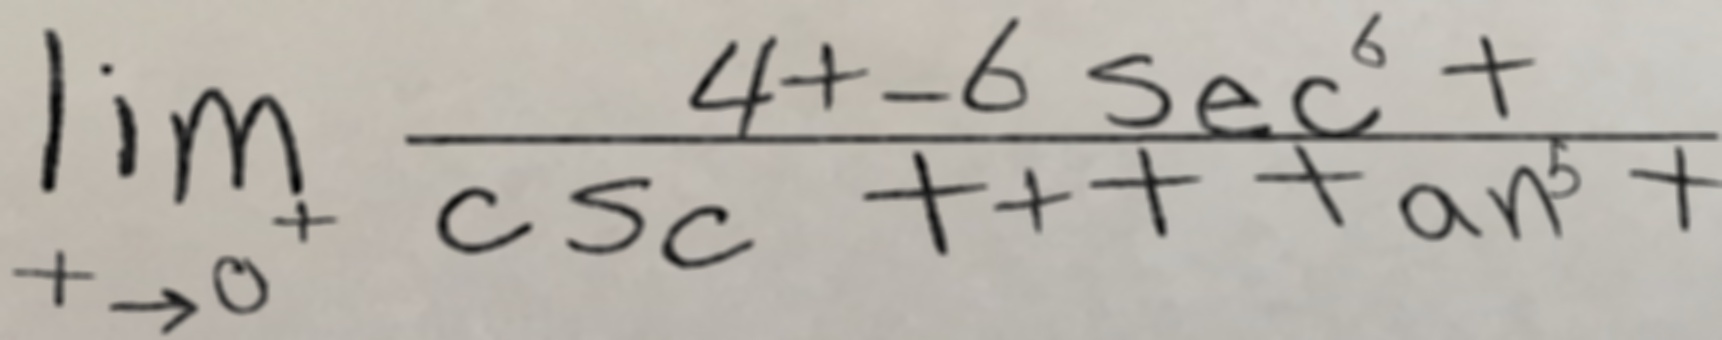 lim t→0⁺ (4t - 6 sec⁶ t) / (csc t + t tan⁵ t)